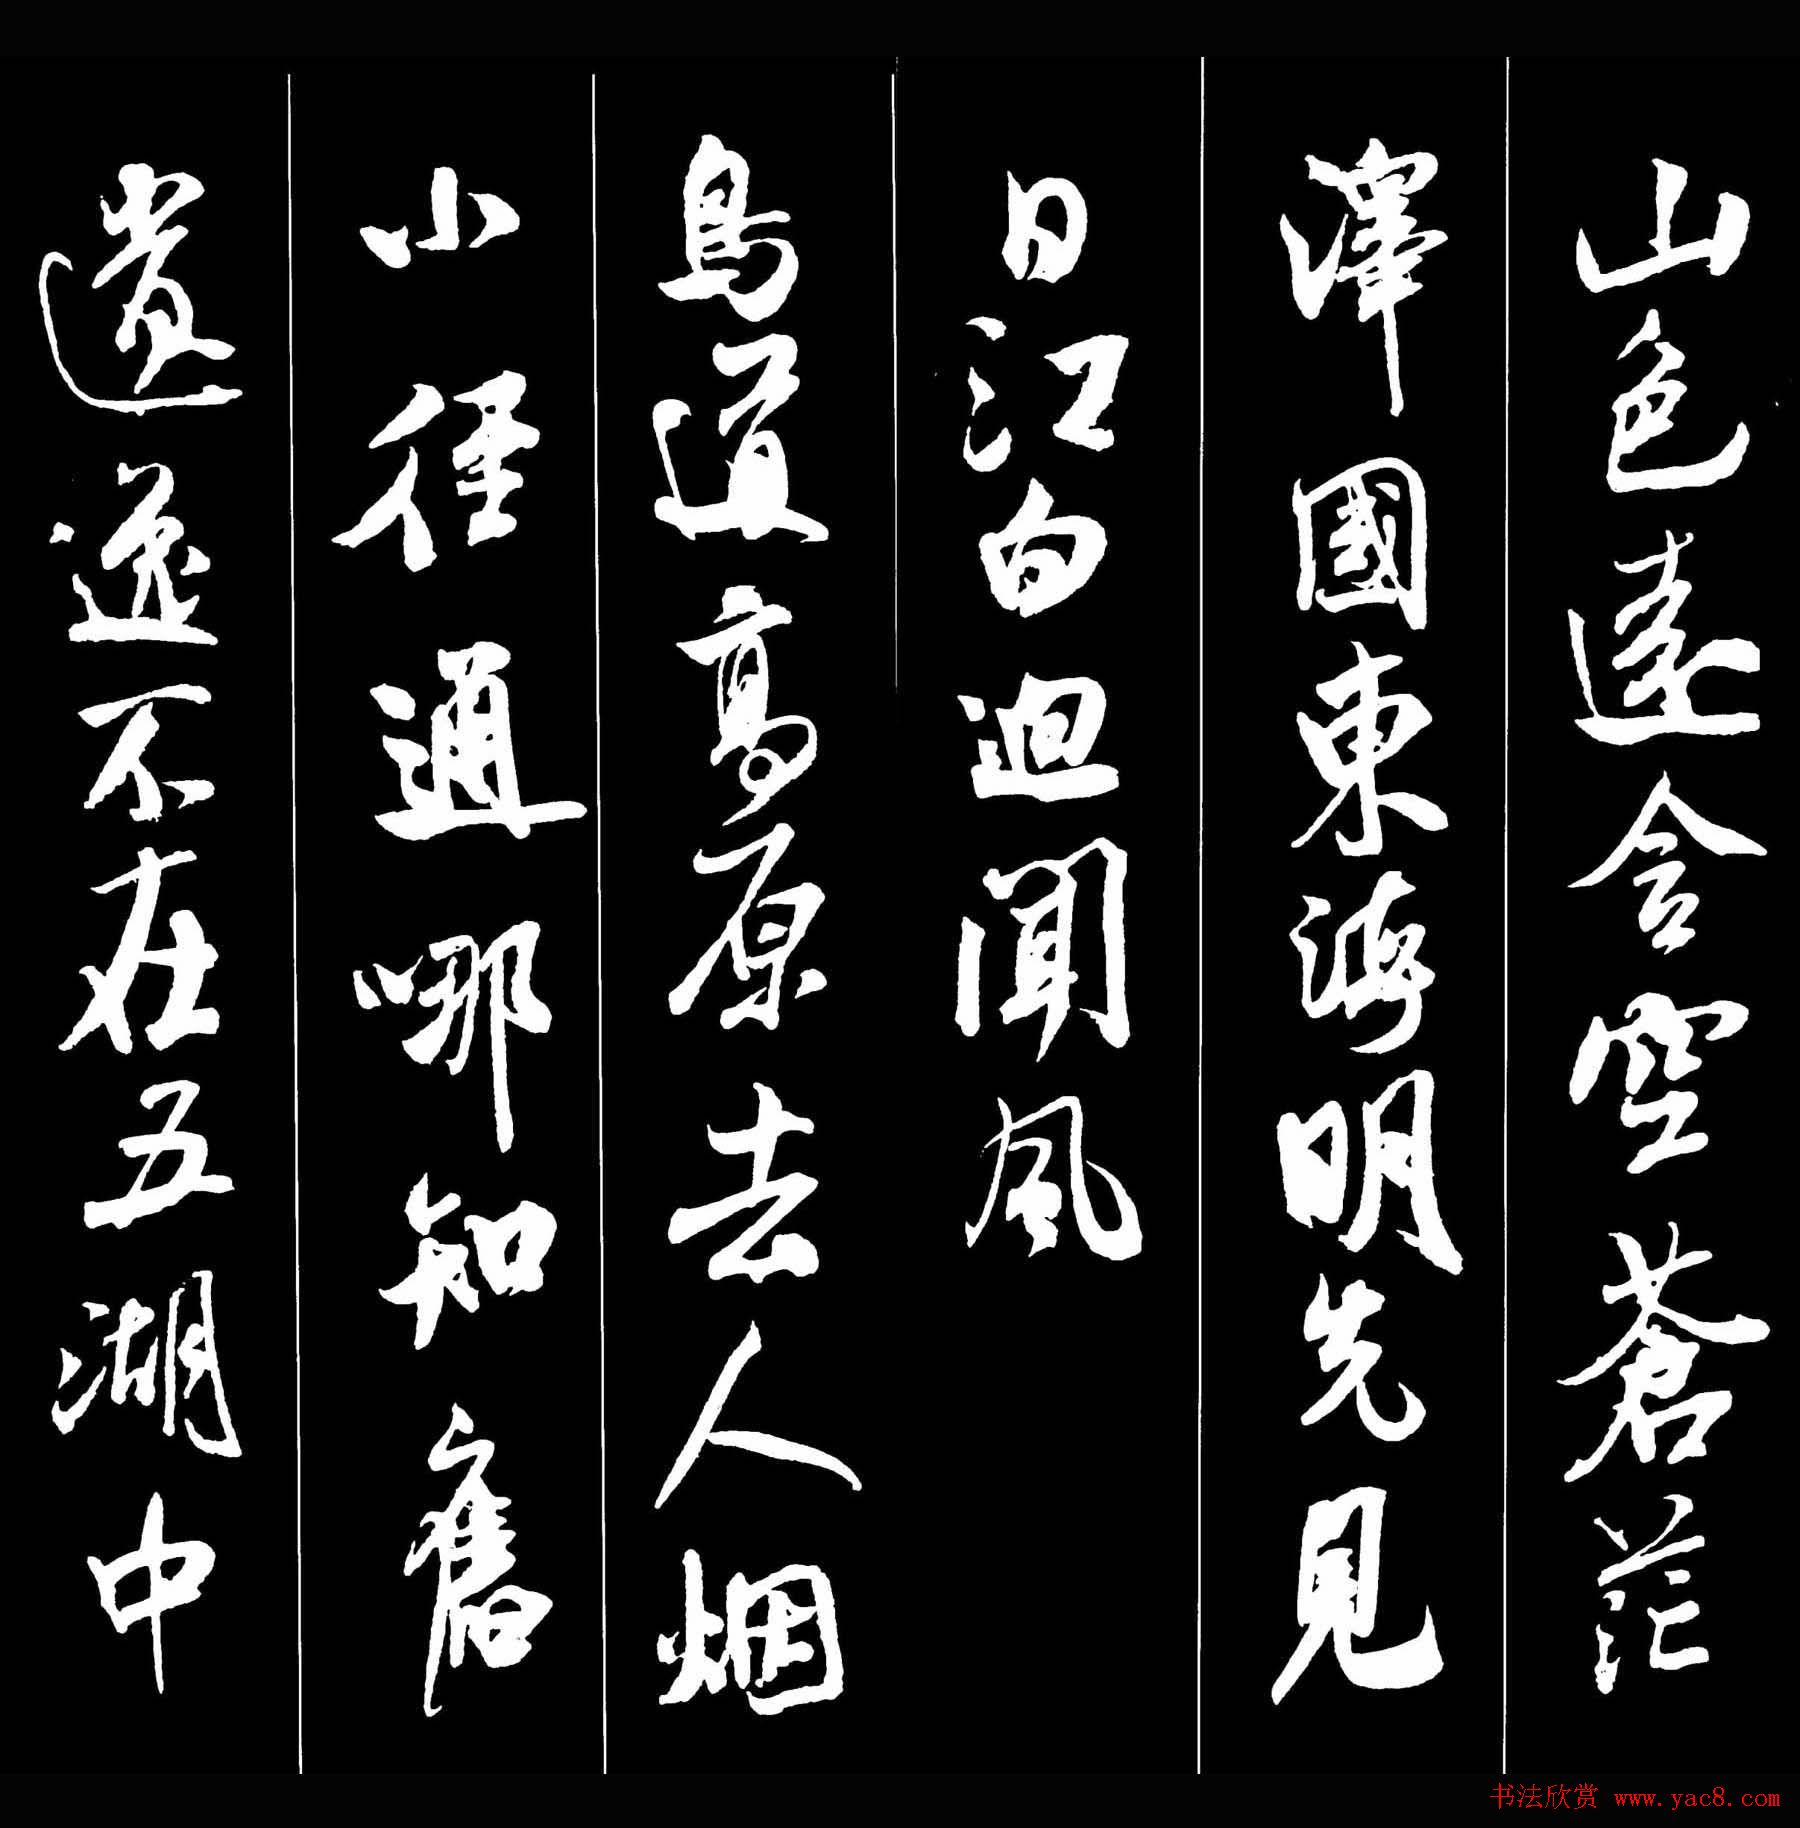 山色遠含空蒼茫
澤國東海明先見
日江白迥聞風
鳥道高原去人煙
小徑通哪知舊
遺逸不在五湖中
书法欣赏 www.yac8.com